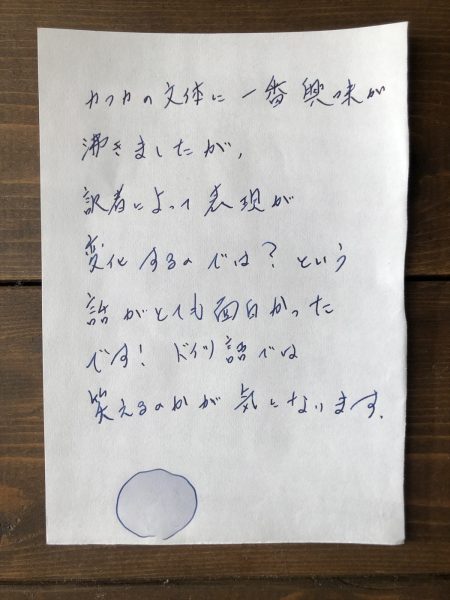 カフカの文体に一番興味が
沸きましたが、
訳者によって表現が
変化するのでは?という
話がとても面白かった
です!ドイツ語では
笑えるのかが気になります.